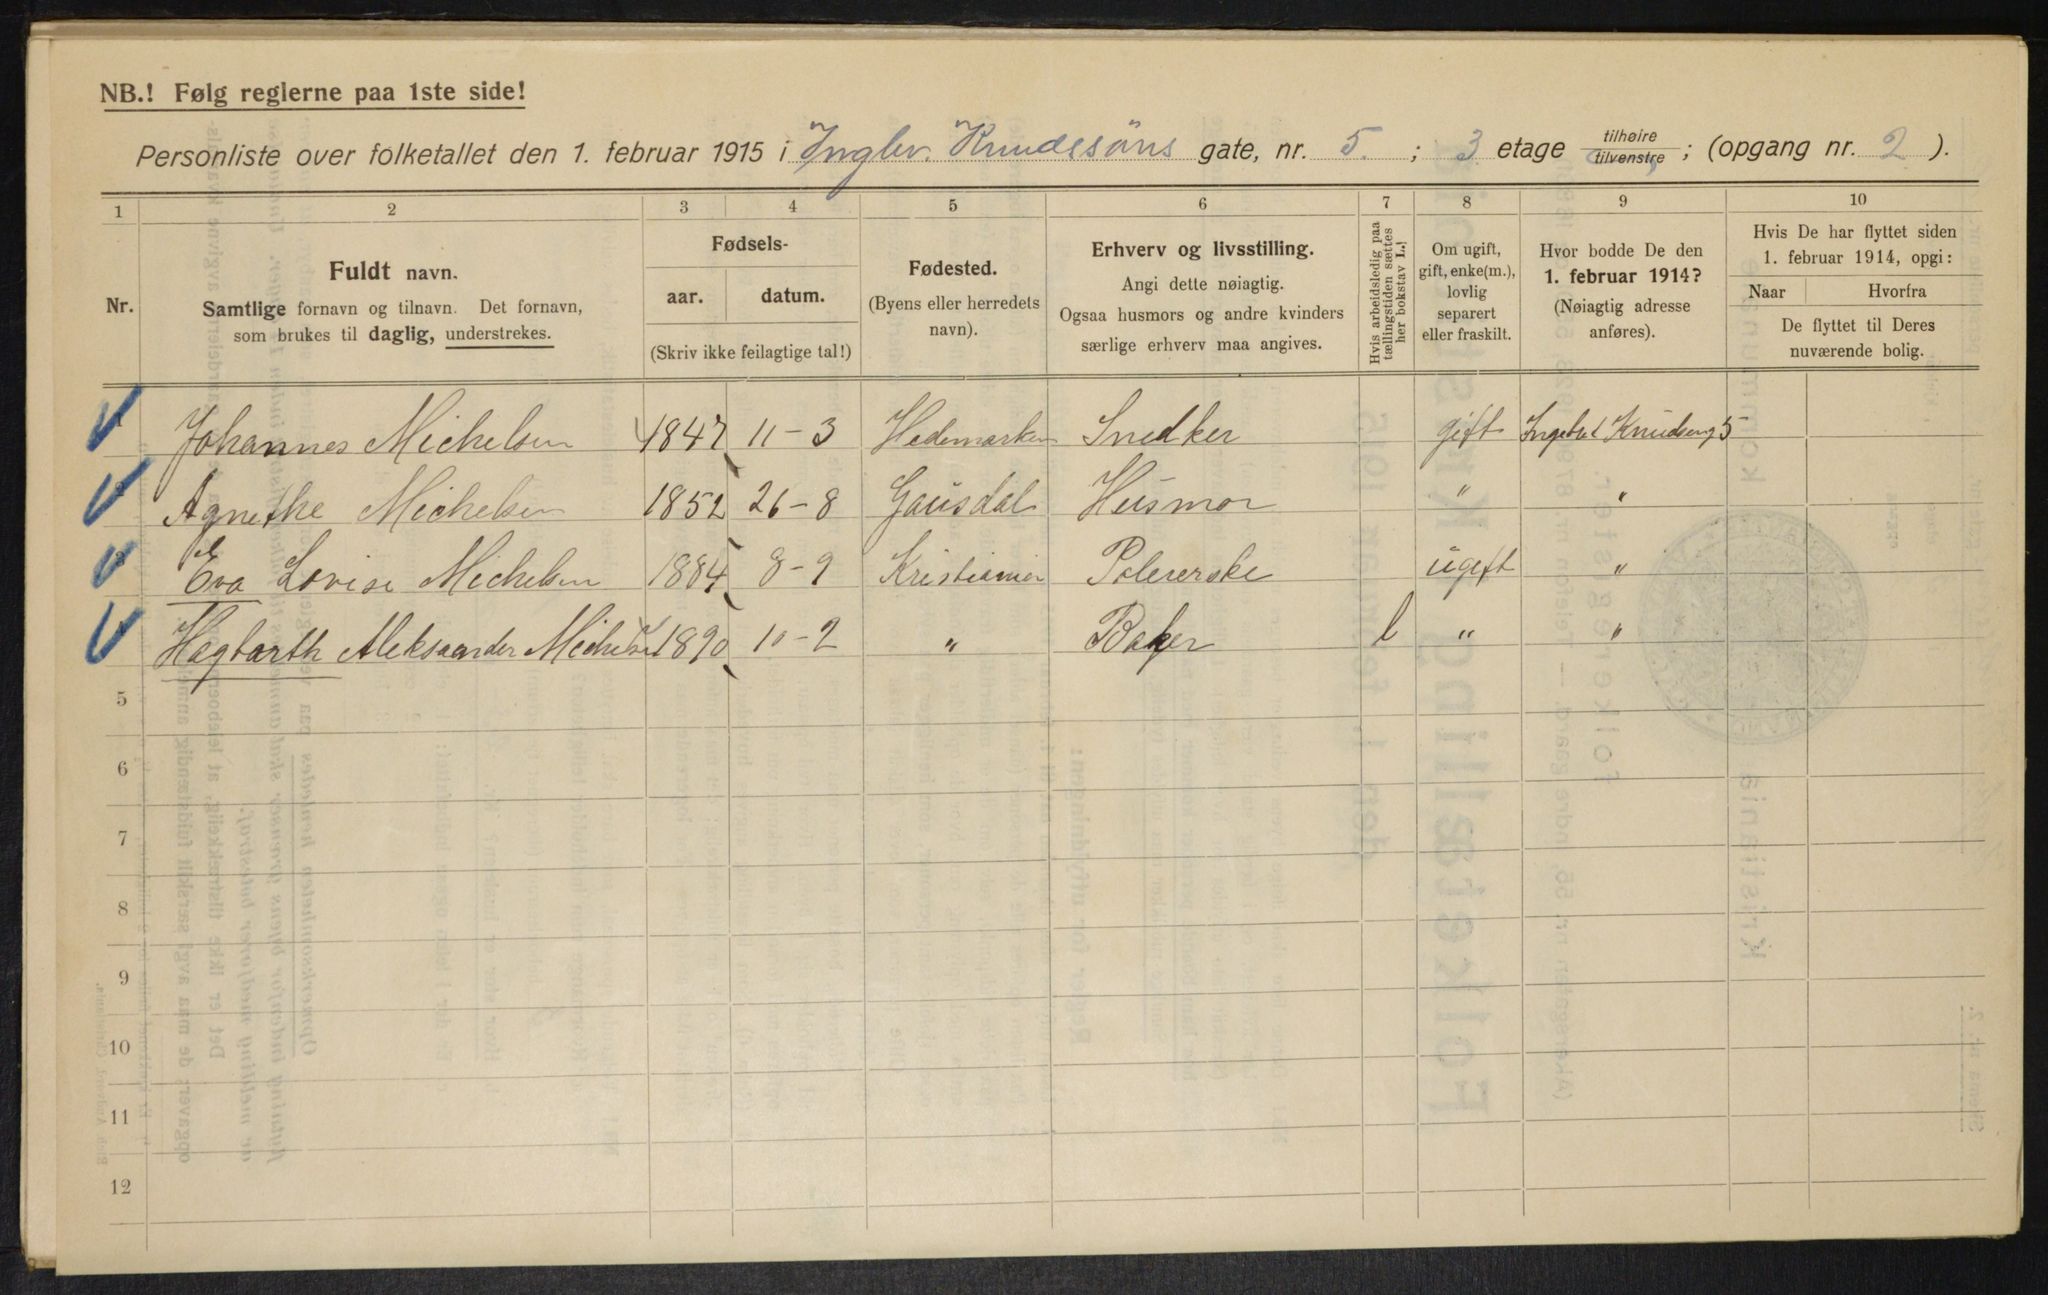 NB.! Følg reglerne paa 1ste side!
Personliste over folketallet den 1. februar 1915 i Inglbv. Knudesöns gate, nr. 5. ; 3 etage tilhøire tilvenstre ; (opgang nr. 2 ).
1 2 3 4 5 6 7 8 9 10
Nr.
Fuldt navn.
Samtlige fornavn og tilnavn. Det fornavn,
som brukes til daglig, understrekes.
Fødsels-
aar. datum.
(Skriv ikke feilagtige tal!)
Fødested.
(Byens eller herredets
navn).
Erhverv og livsstilling.
Angi dette nøiagtig.
Ogsaa husmors og andre kvinders
særlige erhverv maa angives.
Hvis arbeidsledig paa
tællingstiden sættes
her bokstav L.!
Om ugift,
gift, enke(m.),
lovlig
separert
eller fraskilt.
Hvor bodde De den
1. februar 1914?
(Nøiagtig adresse
anføres).
Hvis De har flyttet siden
1. februar 1914, opgi:
Naar Hvorfra
De flyttet til Deres
nuværende bolig.
1 Johannes Michelsen 1847 11-3 Hedemarken Snedker gift Knudsens 5
2 Agnethe Michelsen 1852 26-8 Gausdal Husmor " "
3 Eva Lovise Michelsen 1884 8-9 Kristiania Polererske ugift "
4 Hagbarth Aleksander Michelsen 1890 10-2 " Baker l " "
5
6
7
8
9
10
11
12